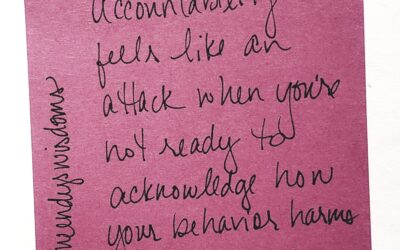 Accountability
feels like an
attack when you're
not ready to
acknowledge how
your behavior harms
wendyswisdoms